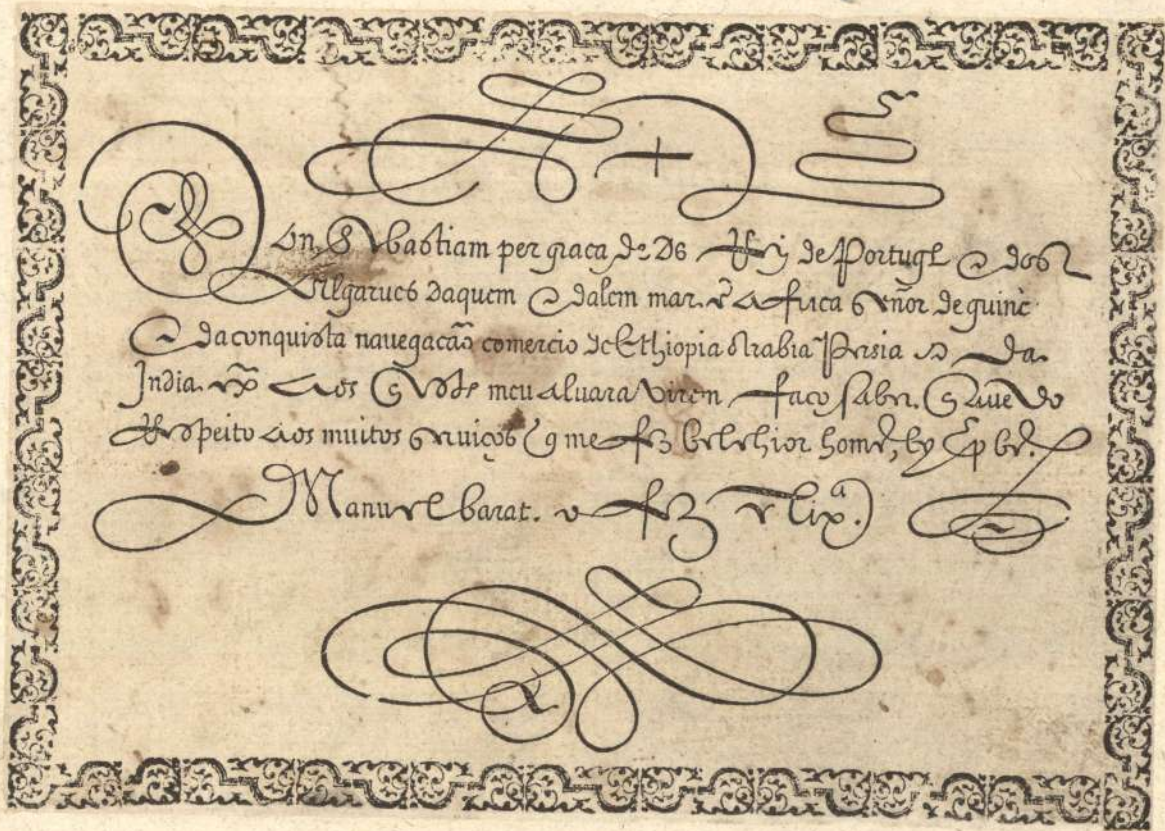 Don Sebastiam per graca de Ds Rey de Portugl e dos
Algarues daquem e dalem mar. ẽ Africa Señor de guine
e da conquista nauegacão comercio de Ethiopia Arabia Persia & da
India. Aos q̃ este meu aluara virem faço saber. q̃ auendo
Respeito aos muitos seruiços q̃ me fez belchior homẽ, ey
Manuel barat. o fez e lixª.)